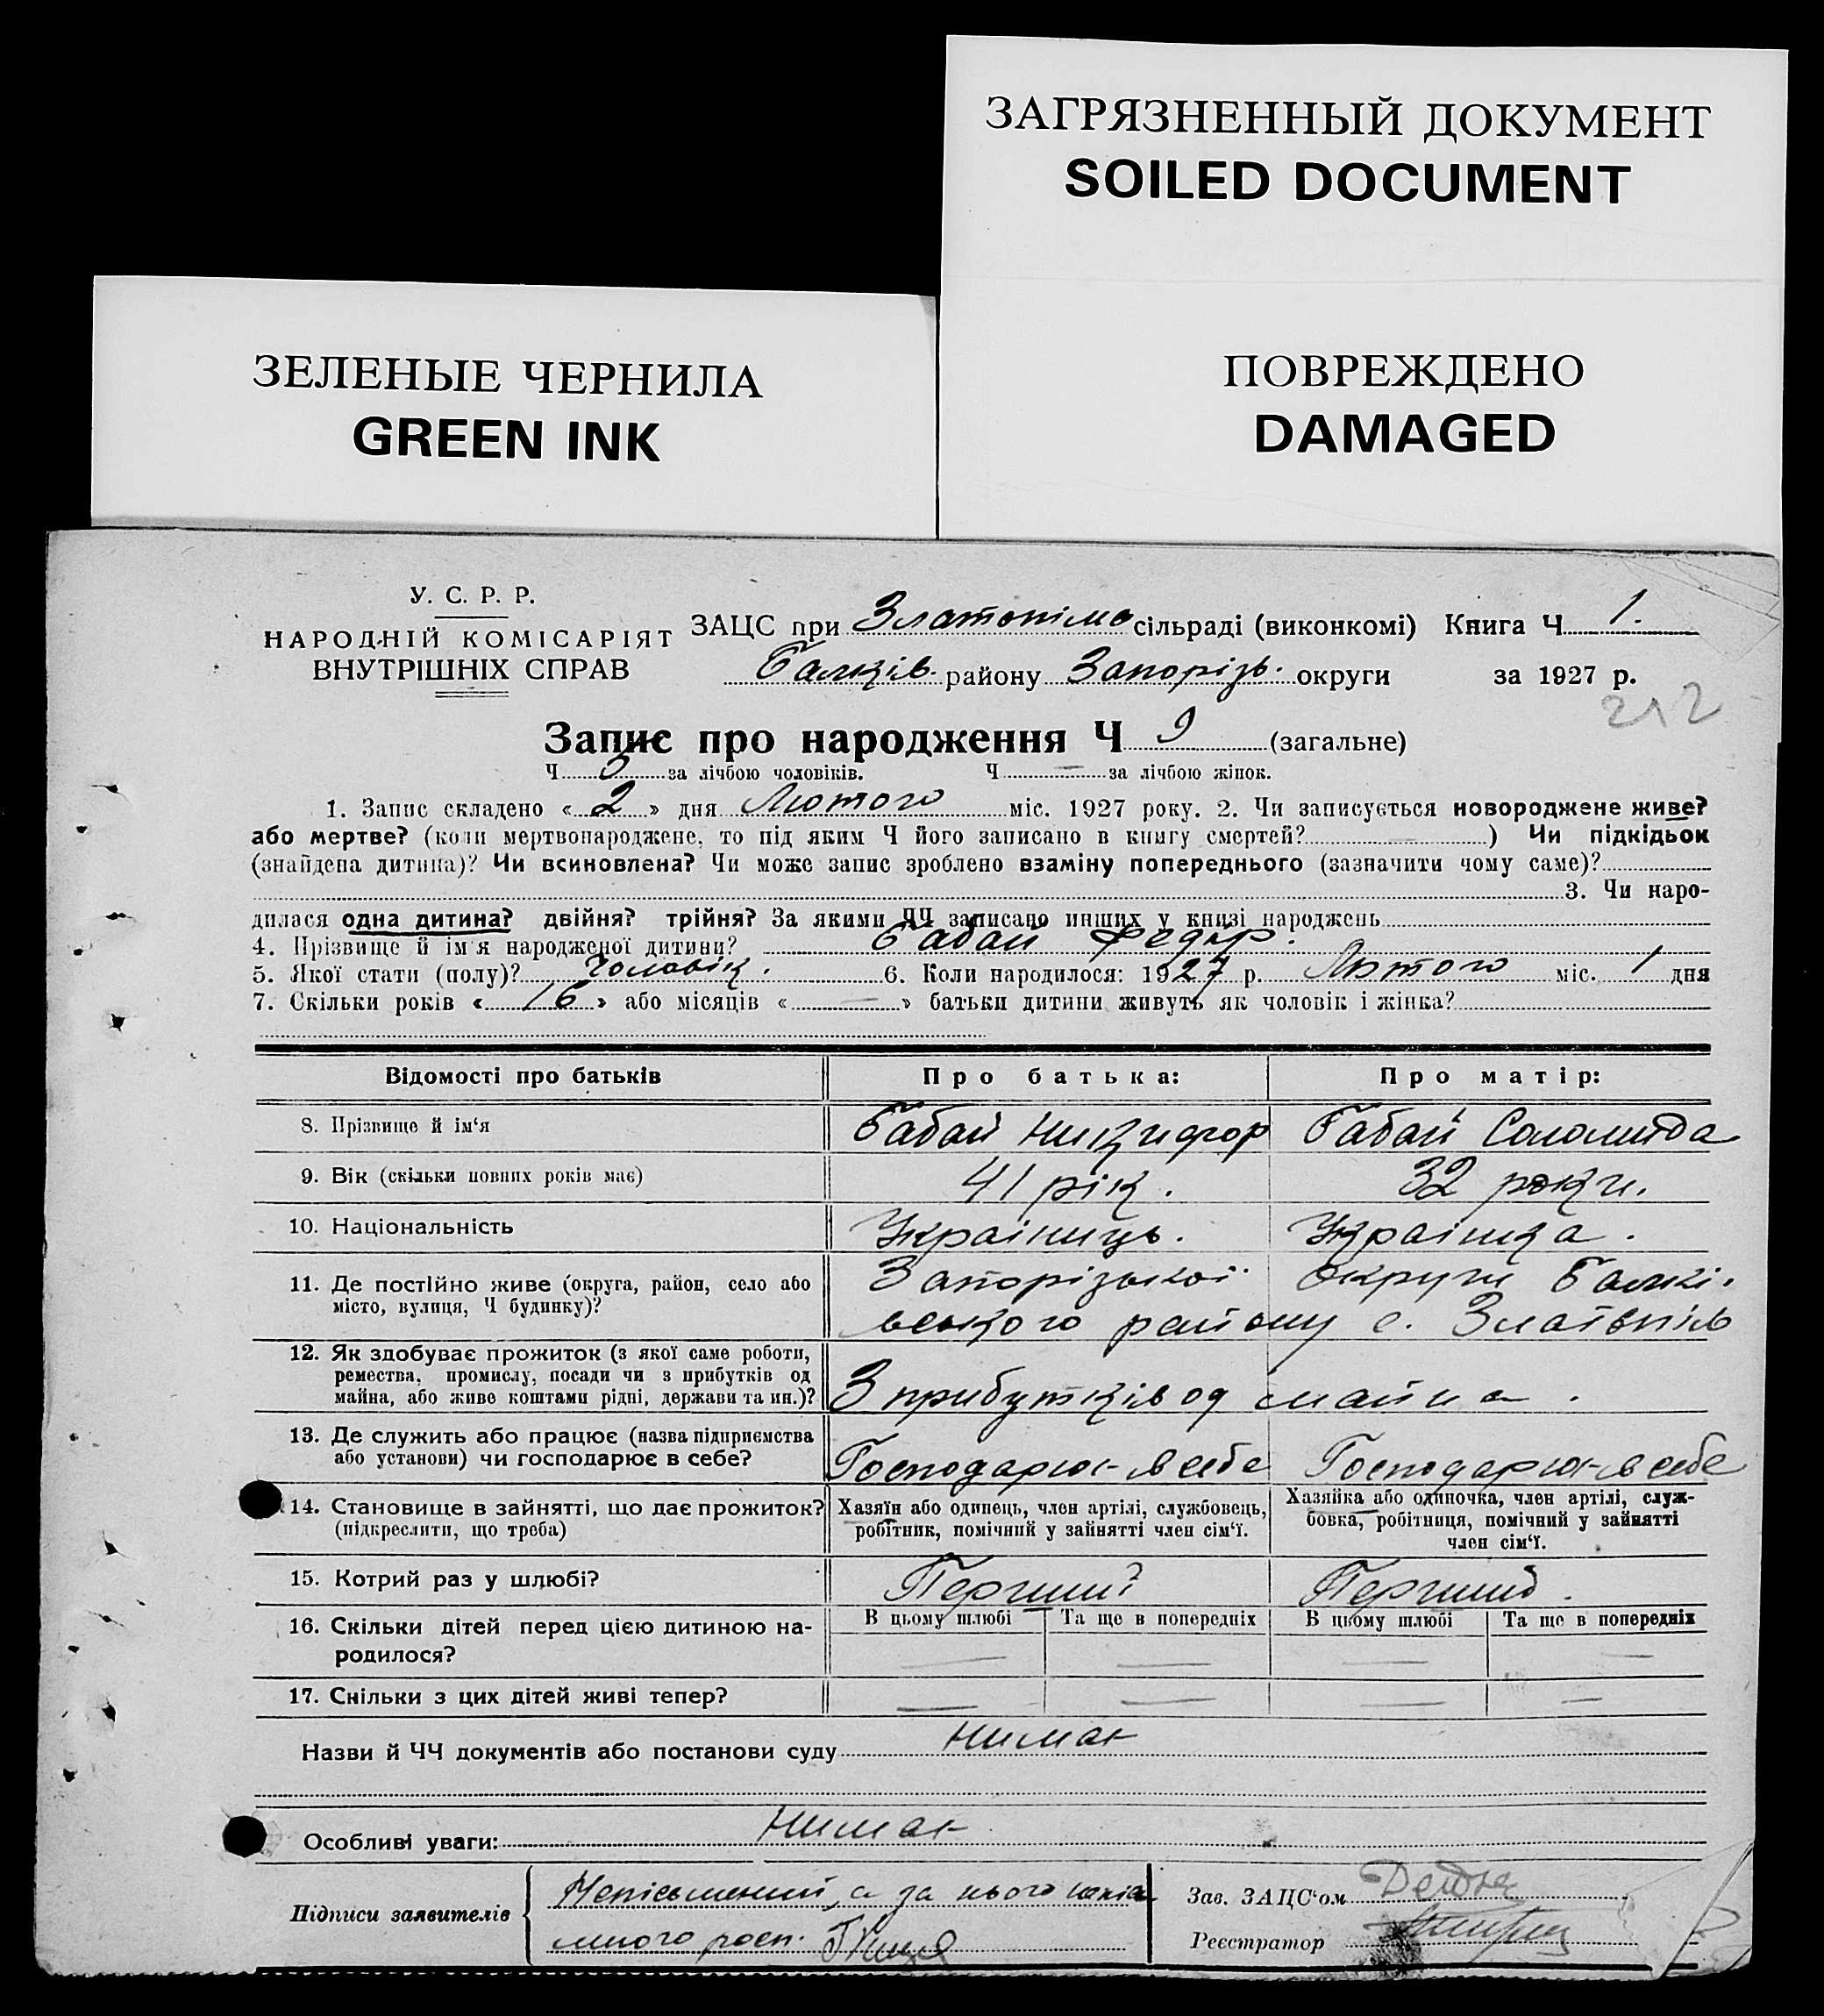 ЗАГРЯЗНЕННЫЙ ДОКУМЕНТ
SOILED DOCUMENT
ЗЕЛЕНЫЕ ЧЕРНИЛА
GREEN INK
ПОВРЕЖДЕНО
DAMAGED
У. С. Р. Р.
НАРОДНІЙ КОМІСАРІЯТ
ВНУТРІШНІХ СПРАВ
ЗАЦС при Златопілю сільраді (виконкомі) Книга Ч 1.
Балків. району Запорізь. округи за 1927 р.
212
Запис про народження Ч 9 (загальне)
Ч 5 за лічбою чоловіків. Ч — за лічбою жінок.
1. Запис складено « 2 » дня Лютого міс. 1927 року. 2. Чи записується новороджене живе?
або мертве? (коли мертвонароджене, то під яким Ч його записано в книгу смертей? — ) Чи підкідьок
(знайдена дитина)? Чи всиновлена? Чи може запис зроблено взаміну попереднього (зазначити чому саме)?
3. Чи наро-
дилася одна дитина? двійня? трійня? За якими ЧЧ записано инших у книзі народжень
4. Прізвище й ім'я народженої дитини? Бабай Федір.
5. Якої стати (полу)? Чоловік. 6. Коли народилося: 1927 р. Лютого міс. 1 дня
7. Скільки років « 16 » або місяців « — » батьки дитини живуть як чоловік і жінка?
Відомості про батьків Про батька: Про матір:
8. Прізвище й ім'я Бабай Никифор Бабай Соломида
9. Вік (скільки повних років має) 41 рік. 32 роки.
10. Національність Україниць. Українка.
11. Де постійно живе (округа, район, село або Запорізької округи Балкі-
місто, вулиця, Ч будинку)? вського району с. Златопіль
12. Як здобуває прожиток (з якої саме роботи,
ремества, промислу, посади чи з прибутків од
майна, або живе коштами рідні, держави та ин.)? З прибутків од майна.
13. Де служить або працює (назва підприємства
або установи) чи господарює в себе? Господарює в себе Господарює в себе
14. Становище в зайнятті, що дає прожиток? Хазяїн або одинець, член артілі, службовець, Хазяйка або одиночка, член артілі, служ-
(підкреслити, що треба) робітник, помічний у зайнятті член сім'ї. бовка, робітниця, помічний у зайнятті
член сім'ї.
15. Котрий раз у шлюбі? Перший Перший.
16. Скільки дітей перед цією дитиною на- В цьому шлюбі Та ще в попередніх В цьому шлюбі Та ще в попередніх
родилося? — — — —
17. Скільки з цих дітей живі тепер? — — — —
Назви й ЧЧ документів або постанови суду Нимає
Особливі уваги: Нимає
Підписи заявителів Неписьменний, а за нього
много росп.
Зав. ЗАЦС'ом
Реєстратор